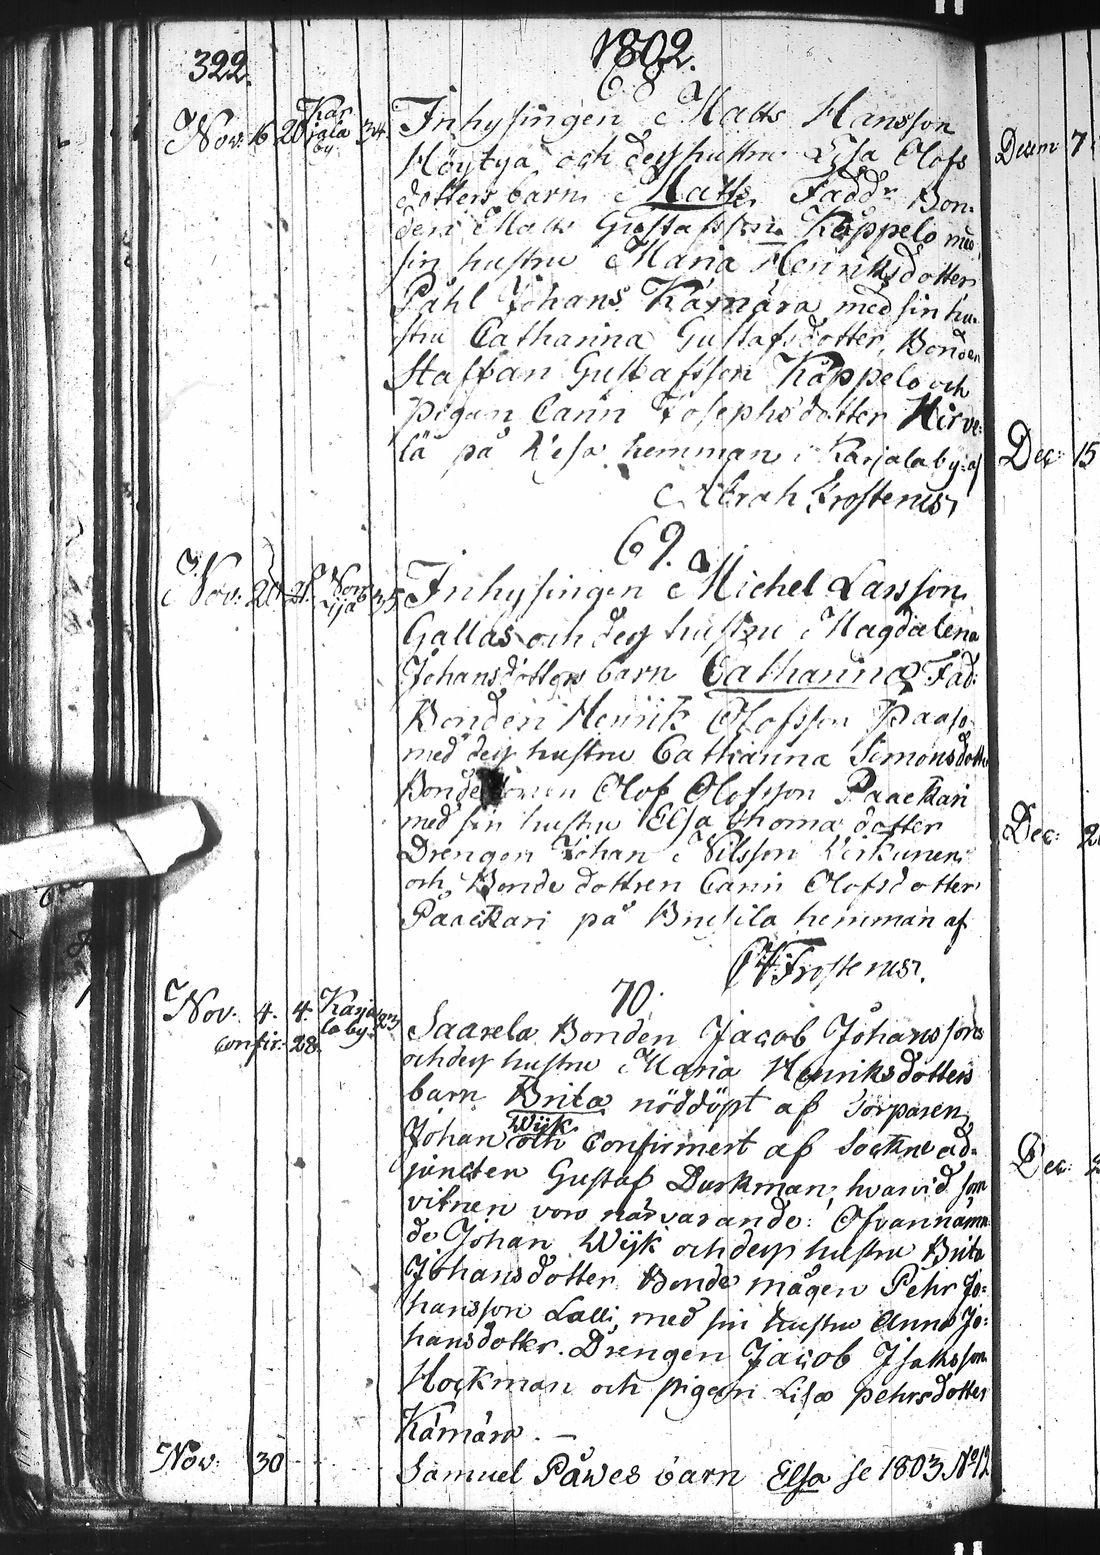 322.
1802.
68.
Nov: 16 20 Kar
jala
by. 34.
Inhysingen Matts Hansson
Höytyä och dess hustru Lisa Olofs
dotters barn Matts, Faddr Bon-
den Matts Gustafsson Kåppelo med
sin hustru Maria Henriksdotter
Påhl Johans. Kämärä med sin hu-
stru Catharina Gustafsdotter, Bonden
Staffan Gustafsson Kåppelo och
pigan Carin Josephsdotter Hirve-
lä på hemman i Karjala by af
Abrah Frostenus,
69.
Nov: 20 21. 35
Inhysingen Michel Larsson
Gallas och dess hustru Magdalena
Johansdotters barn Catharina Fad:
Bonden Henrik Olofsson Paaso
med dess hustru Catharina Simonsdotter
Olof Olofsson Paackari
med sin hustru Elsa Thomadotter
Drengen Johan Nilsson
och Bonde dottren Carin Olofsdotter
Paackari på hemman af
Frostenus.
70.
Nov. 4. 4. Karja
la by.
Confir. 28.
Saarela Bonden Jacob Johanssons
och dess hustru Maria Henriksdotters
barn Brita nöddöpt af Torparen
Wijk
Johan och Confirmert af Sockne ad-
juncten Gustaf Durkman, hvarvid som
vitnen voro närvarande: Ofvannämn-
de Johan Wijk och dess hustru Brita
Johansdotter Bonde mågen Pehr Jo-
hansson Lalli, med sin hustru Anna Jo-
hansdotter. Drengen Jacob Isaksson
Hockman och pigan Lisa Pehrsdotter
Kämärä. —
Nov: 30
Samuel Påwes barn Elsa se 1803 No 12
Decem 7
Dec: 15
Dec: 2
Dec: 2